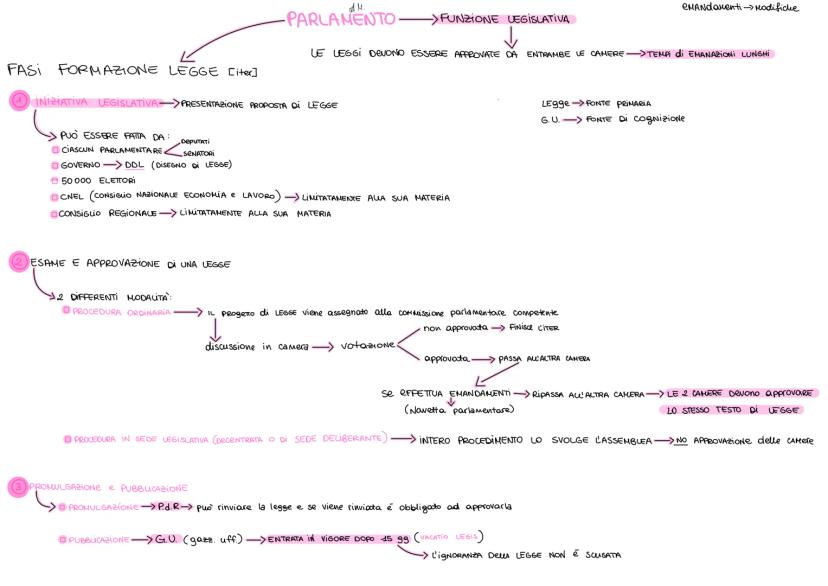 PARLAMENTO → FUNZIONE LEGISLATIVA
EMANDAMENTI → MODIFICHE
LE LEGGI DEVONO ESSERE APPROVATE DA ENTRAMBE LE CAMERE → TEMPI di EMANAZIONI LUNGHI
FASI FORMAZIONE LEGGE [iter]
1 INIZIATIVA LEGISLATIVA → PRESENTAZIONE PROPOSTA DI LEGGE
Legge → FONTE PRIMARIA
G.U. → FONTE DI COGNIZIONE
PUÒ ESSERE FATTA DA:
CIASCUN PARLAMENTARE
DEPUTATI
SENATORI
GOVERNO → DDL (DISEGNO DI LEGGE)
50 000 ELETTORI
CNEL (CONSIGLIO NAZIONALE ECONOMIA e LAVORO) → LIMITATAMENTE ALLA SUA MATERIA
CONSIGLIO REGIONALE → LIMITATAMENTE ALLA SUA MATERIA
2 ESAME E APPROVAZIONE DI UNA LEGGE
2 DIFFERENTI MODALITÀ:
PROCEDURA ORDINARIA → IL progeto di LEGGE viene assegnato alla commissione parlamentare competente
non approvata → FINISCE L'ITER
discussione in camera → votazione
approvata → PASSA ALL'ALTRA CAMERA
SE EFFETTUA EMANDAMENTI → RIPASSA ALL'ALTRA CAMERA → LE 2 CAMERE DEVONO approvare
(Navetta parlamentare)
LO STESSO TESTO DI LEGGE
PROCEDURA IN SEDE LEGISLATIVA (DECENTRATA O DI SEDE DELIBERANTE) → INTERO PROCEDIMENTO LO SVOLGE L'ASSEMBLEA → NO APPROVAZIONE delle CAMERE
3 PROMULGAZIONE e PUBBLICAZIONE
PROMULGAZIONE → P.d.R → può rinviare la legge e se viene rinviata é obbligato ad approvarla
PUBBLICAZIONE → G.U. (gazz. uff.) → ENTRATA IN VIGORE DOPO 15 gg (VACATIO LEGIS)
L'IGNORANZA DELLA LEGGE NON É SCUSATA